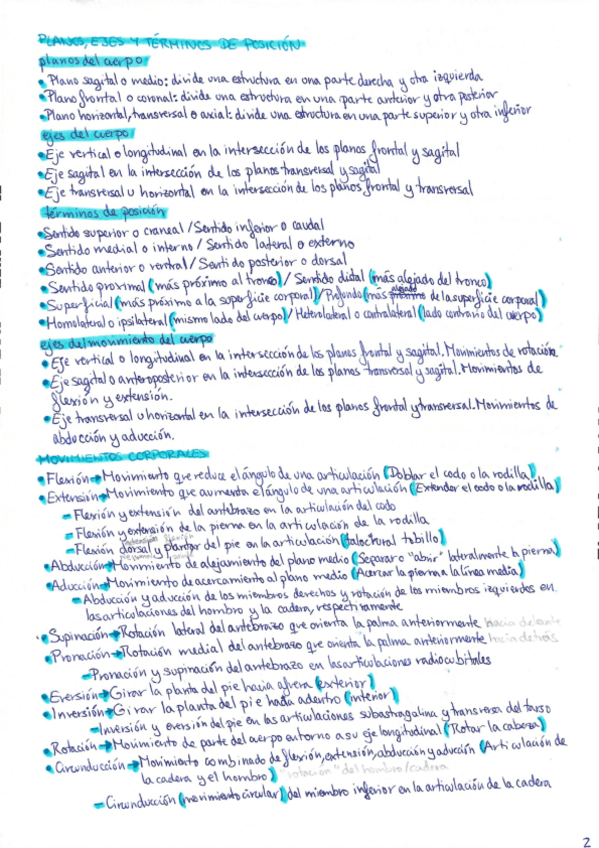 PLANOS, EJES Y TÉRMINOS DE POSICIÓN
planos del cuerpo
• Plano sagital o medio: divide una estructura en una parte derecha y otra izquierda
• Plano frontal o coronal: divide una estructura en una parte anterior y otra posterior
• Plano horizontal, transversal o axial: divide una estructura en una parte superior y otra inferior
ejes del cuerpo
• Eje vertical o longitudinal en la intersección de los planos frontal y sagital
• Eje sagital en la intersección de los planos transversal y sagital
• Eje transversal u horizontal en la intersección de los planos frontal y transversal
términos de posición
• Sentido superior o craneal / Sentido inferior o caudal
• Sentido medial o interno / Sentido lateral o externo
• Sentido anterior o ventral / Sentido posterior o dorsal
• Sentido proximal (más próximo al tronco) / Sentido distal (más alejado del tronco)
• Superficial (más próximo a la superficie corporal) / Profundo (más alejado de la superficie corporal)
• Homolateral o ipsilateral (mismo lado del cuerpo) / Heterolateral o contralateral (lado contrario del cuerpo)
ejes del movimiento del cuerpo
• Eje vertical o longitudinal en la intersección de los planos frontal y sagital. Movimientos de rotación.
• Eje sagital o anteroposterior en la intersección de los planos transversal y sagital. Movimientos de
flexión y extensión.
• Eje transversal u horizontal en la intersección de los planos frontal y transversal. Movimientos de
abducción y aducción.
MOVIMIENTOS CORPORALES
• Flexión → Movimiento que reduce el ángulo de una articulación (Doblar el codo o la rodilla)
• Extensión → Movimiento que aumenta el ángulo de una articulación (Extender el codo o la rodilla)
– Flexión y extensión del antebrazo en la articulación del codo
– Flexión y extensión de la pierna en la articulación de la rodilla
– Flexión dorsal y plantar del pie en la articulación (talocrural tobillo)
• Abducción → Movimiento de alejamiento del plano medio (Separar o "abrir" lateralmente la pierna)
• Aducción → Movimiento de acercamiento al plano medio (Acercar la pierna a la línea media)
– Abducción y aducción de los miembros derechos y rotación de los miembros izquierdos en
las articulaciones del hombro y la cadera, respectivamente
• Supinación → Rotación lateral del antebrazo que orienta la palma anteriormente hacia delante
• Pronación → Rotación medial del antebrazo que orienta la palma anteriormente hacia detrás
– Pronación y supinación del antebrazo en las articulaciones radiocubitales
• Eversión → Girar la planta del pie hacia afuera (exterior)
• Inversión → Girar la planta del pie hacia adentro (interior)
– Inversión y eversión del pie en las articulaciones subastragalina y transversa del tarso
• Rotación → Movimiento de parte del cuerpo entorno a su eje longitudinal (Rotar la cabeza)
• Circunducción → Movimiento combinado de flexión, extensión, abducción y aducción (Articulación de
la cadera y el hombro) "rotación" del hombro/cadera
– Circunducción (movimiento circular) del miembro inferior en la articulación de la cadera
2